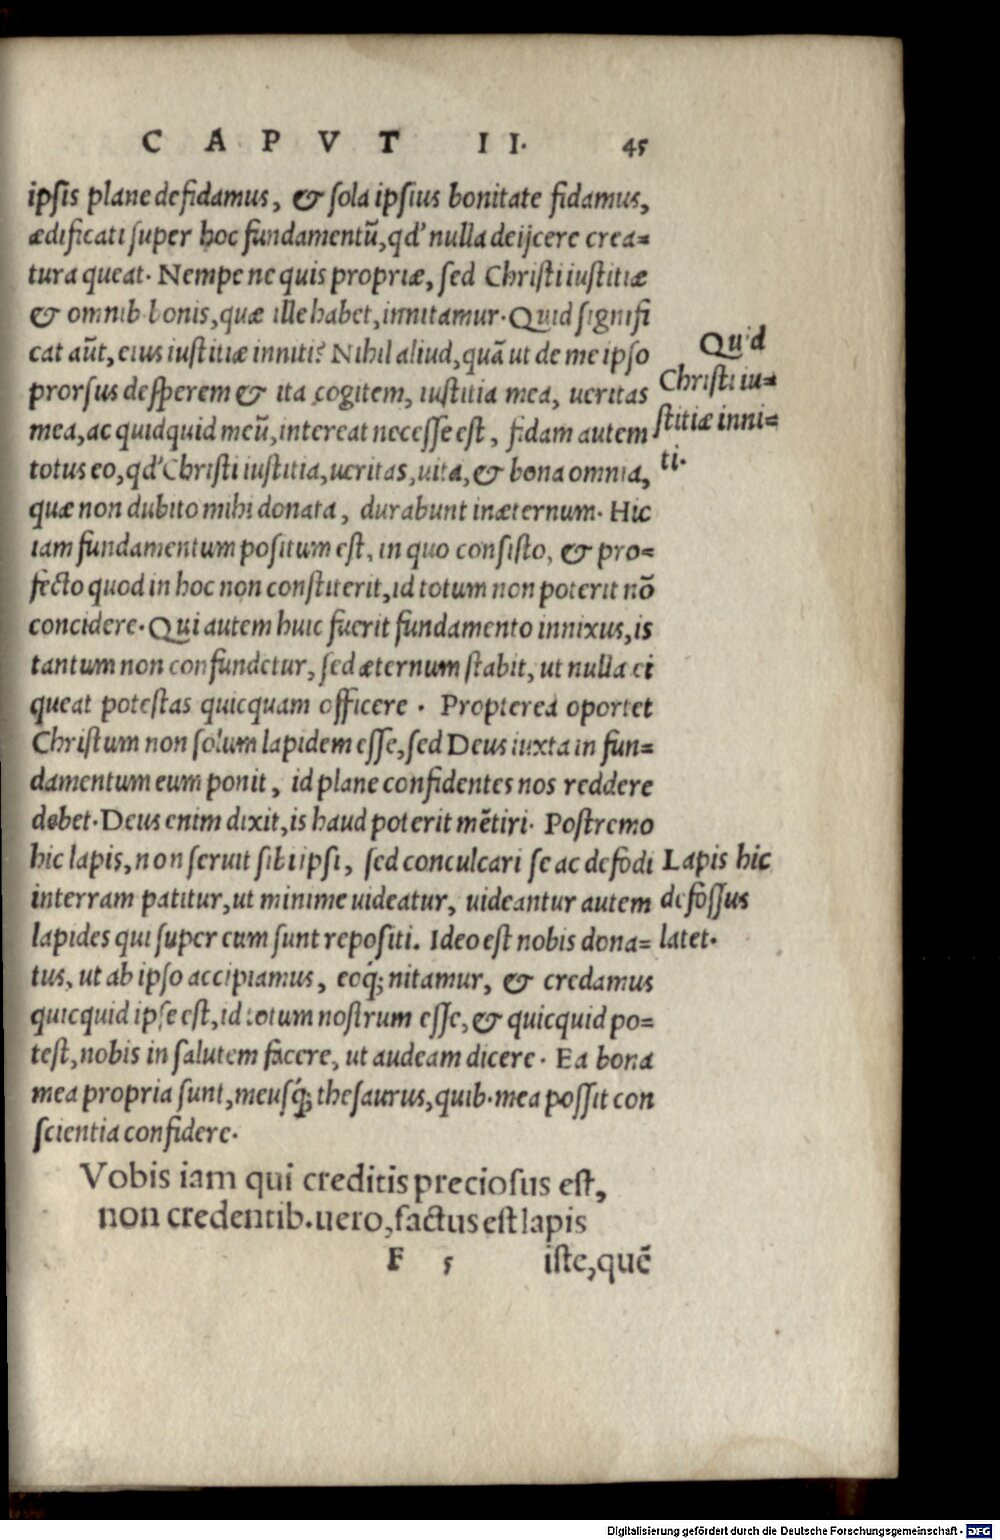 CAPVT II. 45
ipsis plane defidamus, & sola ipsius bonitate fidamus,
ædificati super hoc fundamentũ, qđ nulla deijcere crea=
tura queat. Nempe ne quis propriæ, sed Christi iustitiæ
& omnib. bonis, quæ ille habet, innitamur. Quid signifi
cat aũt, eius iustitiæ inniti? Nihil aliud, quã ut de me ipso
prorsus desperem & ita cogitem, iustitia mea, ueritas
mea, ac quidquid meũ, intereat necesse est, fidam autem
totus eo, qđ Christi iustitia, ueritas, uita, & bona omnia,
quæ non dubito mihi donata, durabunt inæternum. Hic
iam fundamentum positum est, in quo consisto, & pro=
fecto quod in hoc non constiterit, id totum non poterit nõ
concidere. Qui autem huic fuerit fundamento innixus, is
tantum non confundetur, sed æternum stabit, ut nulla ei
queat potestas quicquam officere. Propterea oportet
Christum non solum lapidem esse, sed Deus iuxta in fun=
damentum eum ponit, id plane confidentes nos reddere
debet. Deus enim dixit, is haud poterit mẽtiri. Postremo
hic lapis, non seruit sibi ipsi, sed conculcari se ac defodi
interram patitur, ut minime uideatur, uideantur autem
lapides qui super eum sunt repositi. Ideo est nobis dona=
tus, ut ab ipso accipiamus, eoq́; nitamur, & credamus
quicquid ipse est, id totum nostrum esse, & quicquid po=
test, nobis in salutem facere, ut audeam dicere. Ea bona
mea propria sunt, meusq́; thesaurus, quib. mea possit con
scientia confidere.
Vobis iam qui creditis preciosus est,
non credentib. uero, factus est lapis
F 5 iste, quẽ
Quid
Christi iu=
stitiæ inni=
ti.
Lapis hic
defossus
latet.
Digitalisierung gefördert durch die Deutsche Forschungsgemeinschaft - DFG